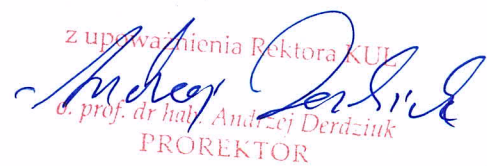 z upoważnienia Rektora KUL
Andrzej Derdziuk
o. prof. dr hab. Andrzej Derdziuk
PROREKTOR